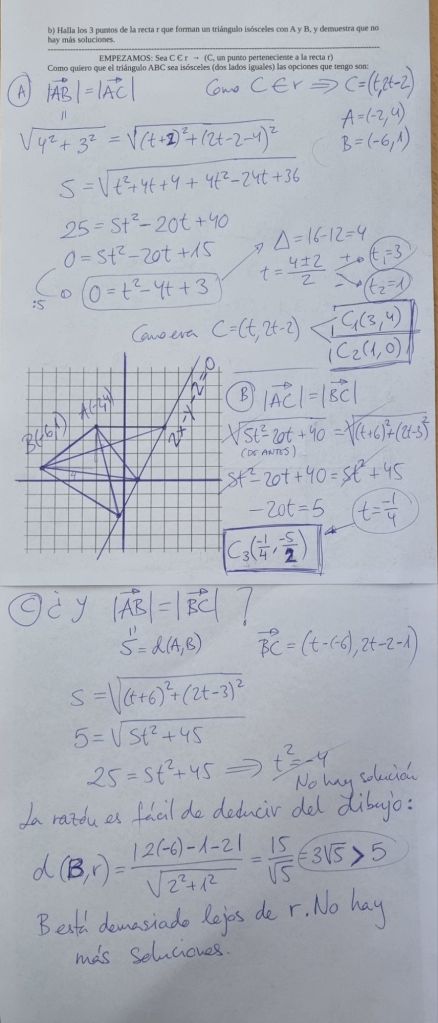 b) Halla los 3 puntos de la recta r que forman un triángulo isósceles con A y B, y demuestra que no
hay más soluciones.
EMPEZAMOS: Sea C Є r → (C, un punto perteneciente a la recta r)
Como quiero que el triángulo ABC sea isósceles (dos lados iguales) las opciones que tengo son:
A) |AB| = |AC|
Como C ∈ r ⟹ C=(t,2t-2)
A=(-2,4)
B=(-6,1)
√(4²+3²) = √((t+2)²+(2t-2-4)²)
5 = √(t²+4t+4+4t²-24t+36)
25 = 5t²-20t+40
0 = 5t²-20t+15
:5 → 0 = t²-4t+3
Δ = 16-12 = 4
t = (4±2)/2
+ → t₁=3
- → t₂=1
Como era C=(t,2t-2)
C₁(3,4)
C₂(1,0)
B(-6,1)
A(-2,4)
2x-y-2=0
4
B) |AC| = |BC|
√(5t²-20t+40) = √((t+6)²+(2t-3)²)
(DE ANTES)
5t²-20t+40 = 5t²+45
-20t = 5
t = -1/4
C₃(-1/4, -5/2)
C) ¿y |AB| = |BC| ?
5 = d(A,B)
BC = (t-(-6), 2t-2-1)
5 = √((t+6)²+(2t-3)²)
5 = √(5t²+45)
25 = 5t²+45 ⟹ t²=-4
No hay solución
La razón es fácil de deducir del dibujo:
d(B,r) = |2(-6)-1-2|/√(2²+1²) = 15/√5 = 3√5 > 5
B está demasiado lejos de r. No hay
más soluciones.